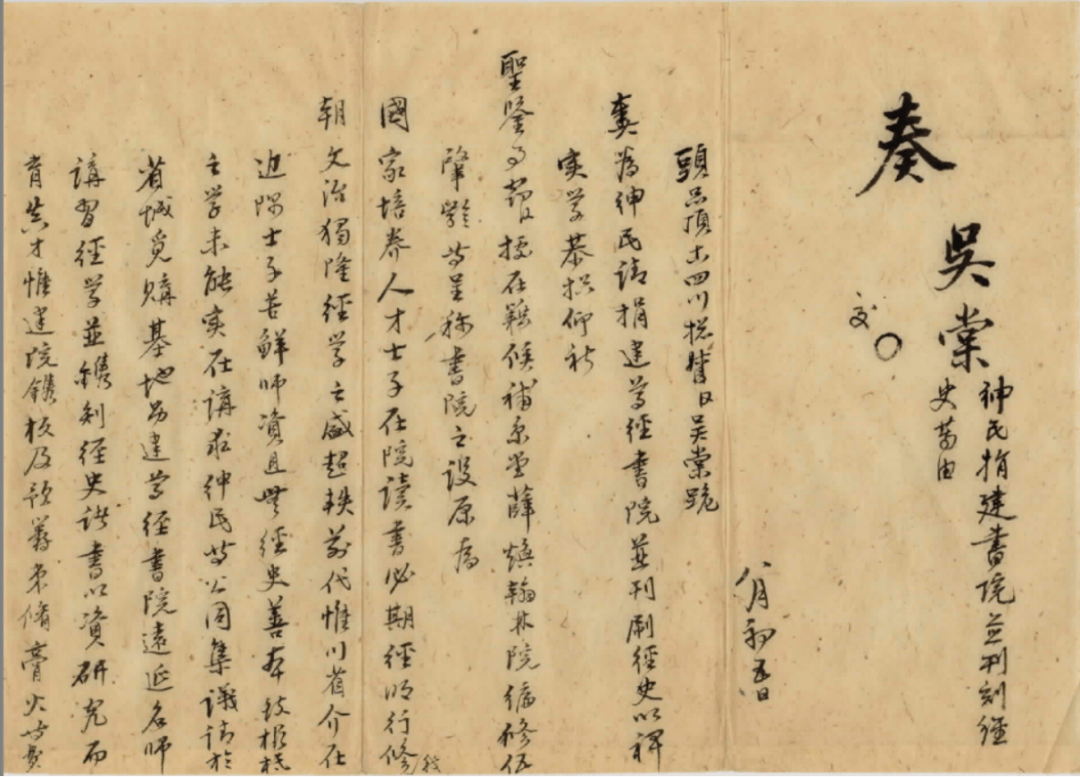 奏
吳棠
紳民捐建書院並刊刻經
史等由
八月初五日
頭品頂戴四川總督臣吳棠跪
奏為紳民請捐建尊經書院並刊刷經史以裨
實學恭摺仰祈
聖鑒事竊據在籍候補京堂薛煥翰林院編修伍
肇齡等呈稱書院之設原為
國家培養人才士子在院讀書必期經明行修我
朝文治獨隆經學之盛超軼前代惟川省介在
邊隅士子苦鮮師資且無經史善本致根柢
之學未能實在講求紳民等公同集議請於
省城覓購基地另建尊經書院遠延名師
講習經學並鐫刻經史諸書以資研究而
育真才惟建院鐫板及籌束脩膏火等費